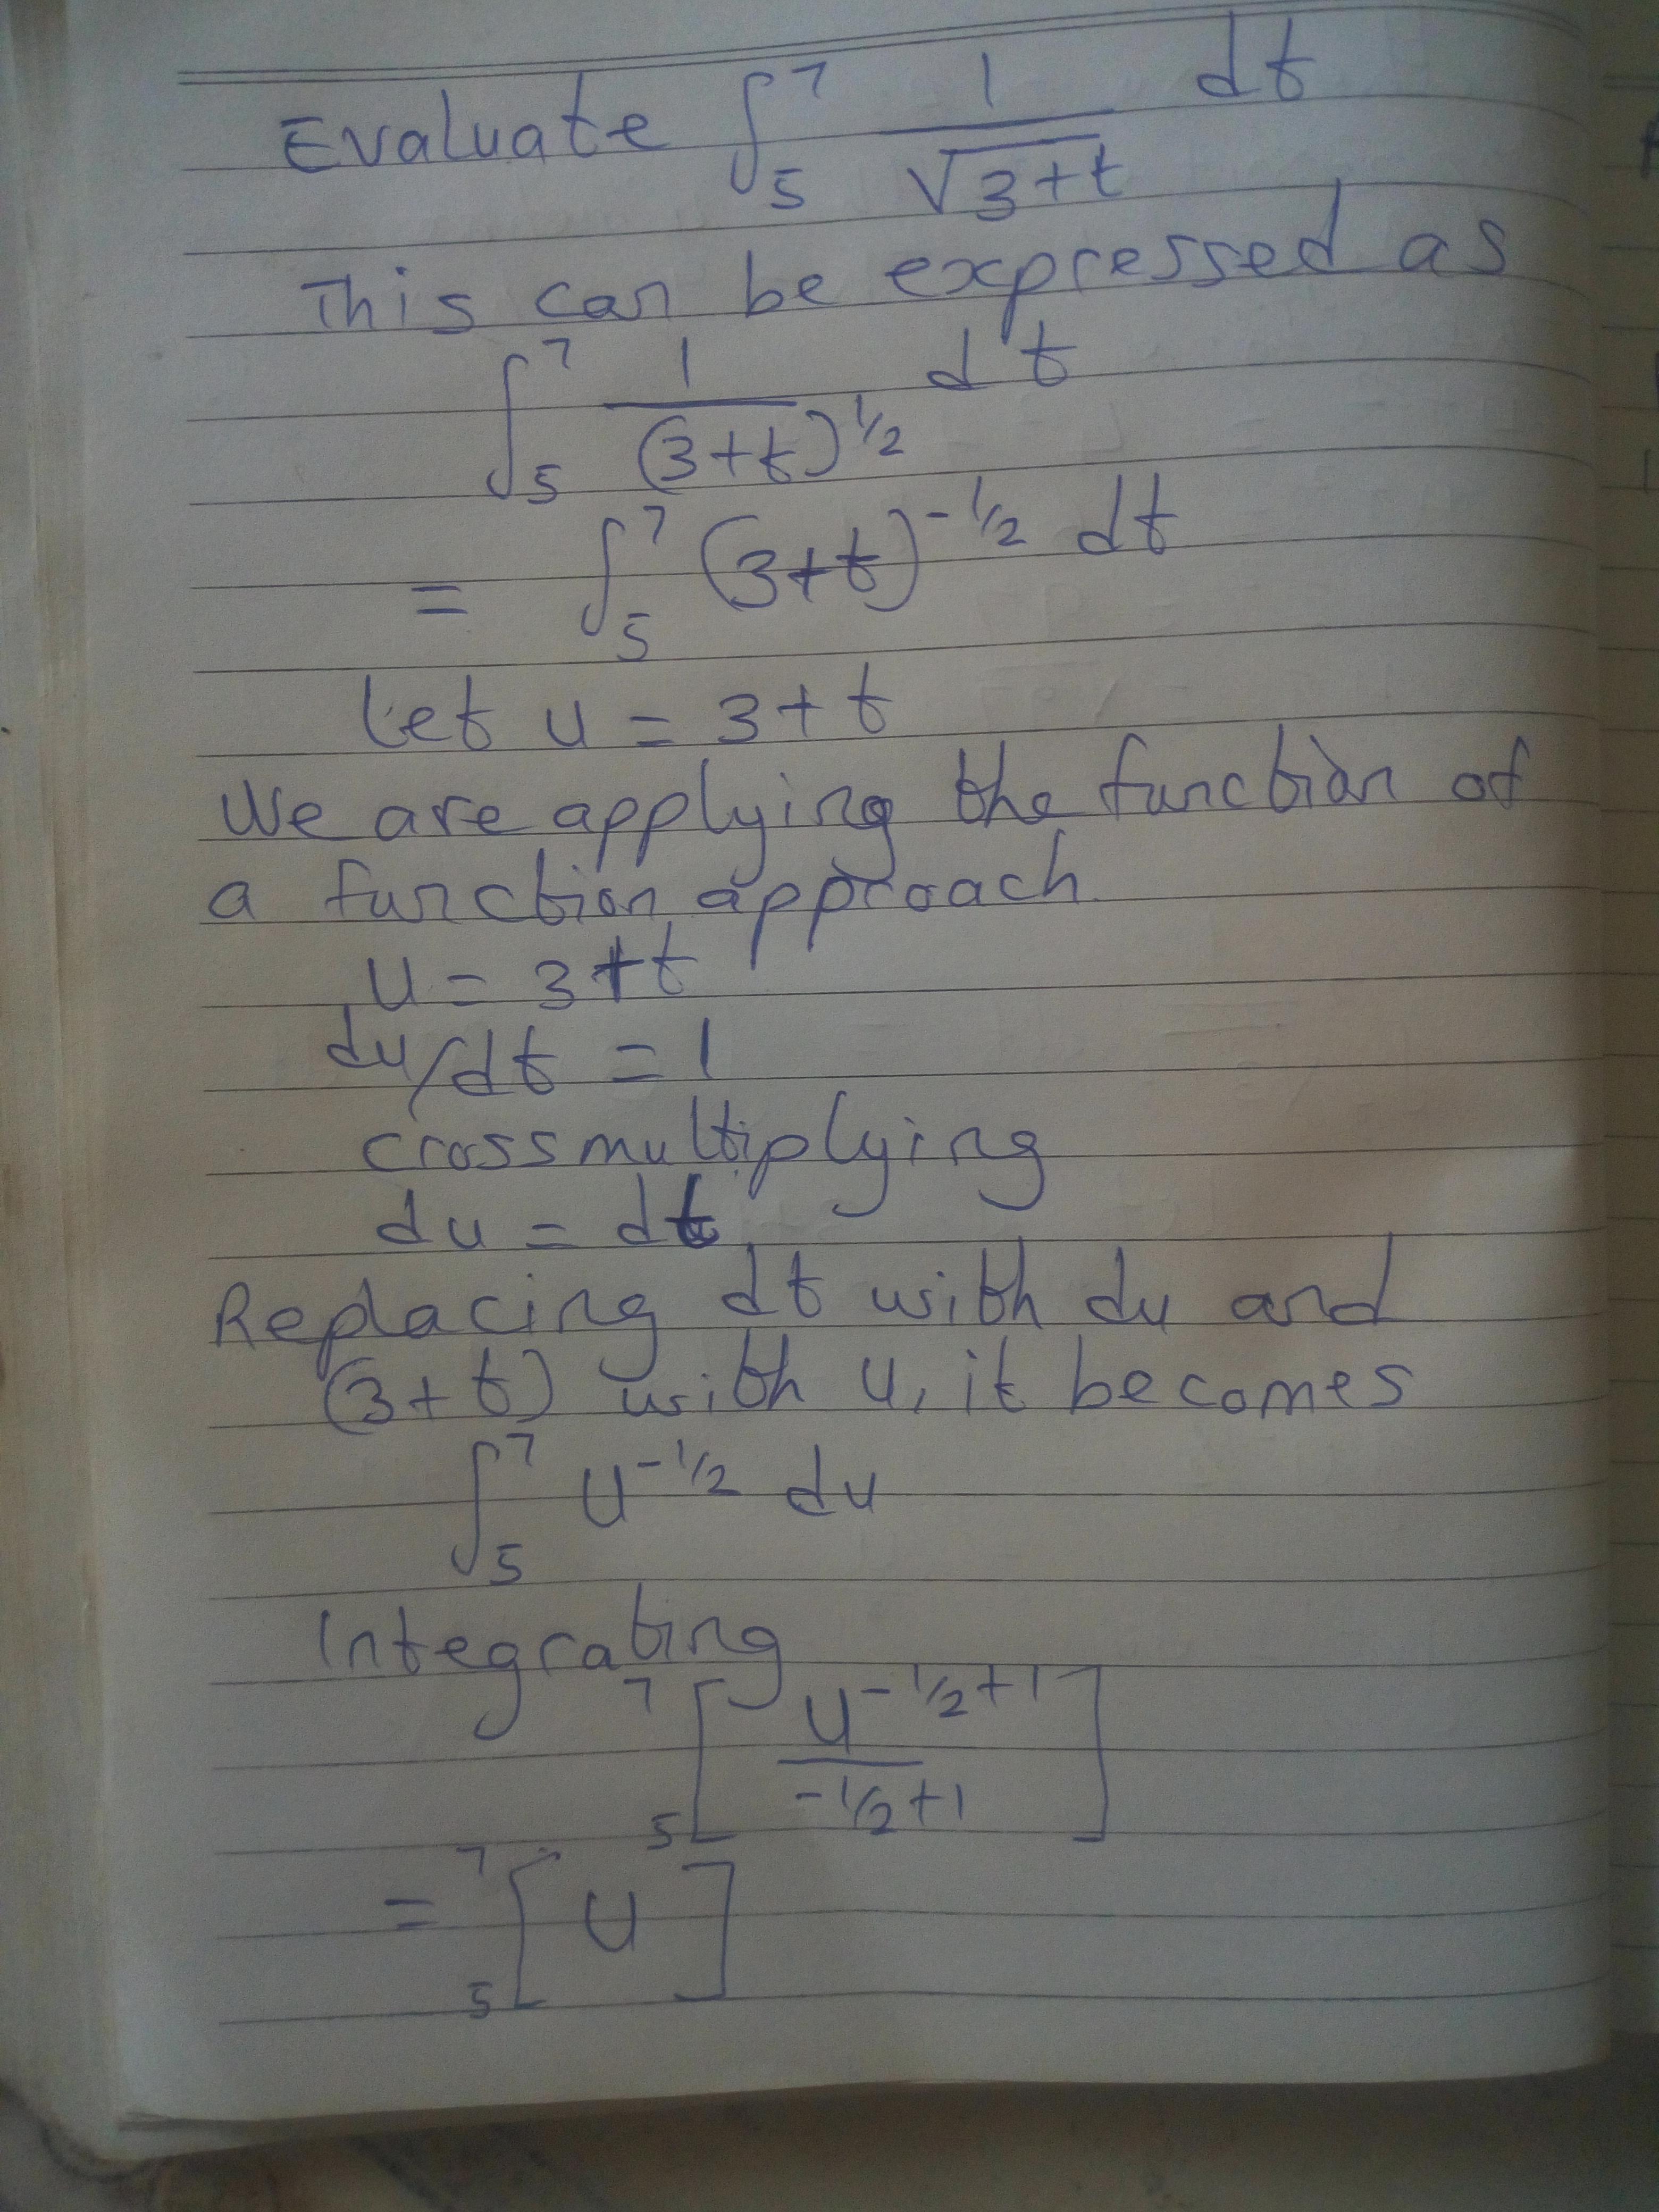 Evaluate ∫₅⁷ 1/√(3+t) dt
This can be expressed as
∫₅⁷ 1/(3+t)^½ dt
= ∫₅⁷ (3+t)^-½ dt
Let u = 3+t
We are applying the function of
a function approach
u = 3+t
du/dt = 1
crossmultiplying
du = dt
Replacing dt with du and
(3+t) with u, it becomes
∫₅⁷ u^-½ du
Integrating
₅⁷[u^(-½+1) / (-½+1)]
= ₅⁷[u]